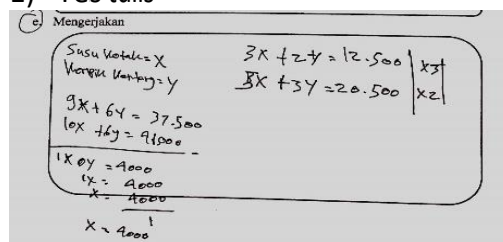 e. Mengerjakan
Susu kotak = X
Y
3X + 2Y = 12.500 | x3 |
5X + 3Y = 20.500 | x2 |
9X + 6Y = 37.500
10X + 6y = 41000
1X 0y = 4000
1X = 4000
X = 4000
1
X = 4000